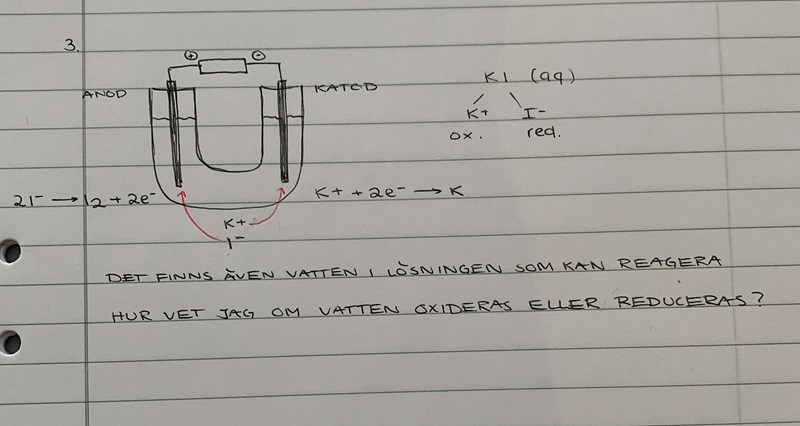 3.
⊕ ⊖
ANOD
KATOD
KI (aq)
K+ I-
ox. red.
2I⁻ → I2 + 2e⁻
K+ + 2e⁻ → K
K+
I⁻
DET FINNS ÄVEN VATTEN I LÖSNINGEN SOM KAN REAGERA
HUR VET JAG OM VATTEN OXIDERAS ELLER REDUCERAS?